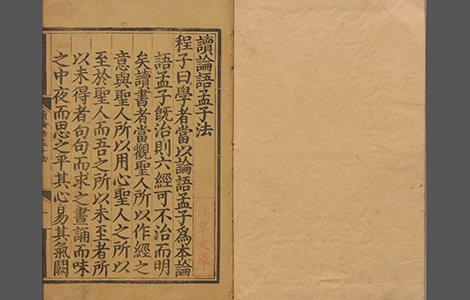 讀論語孟子法
程子曰學者當以論語孟子爲本論
語孟子既治則六經可不治而明
矣讀書者當觀聖人所以作經之
意與聖人所以用心聖人之所以
至於聖人而吾之所以未至者所
以未得者句句而求之晝誦而味
之中夜而思之平其心易其氣闕